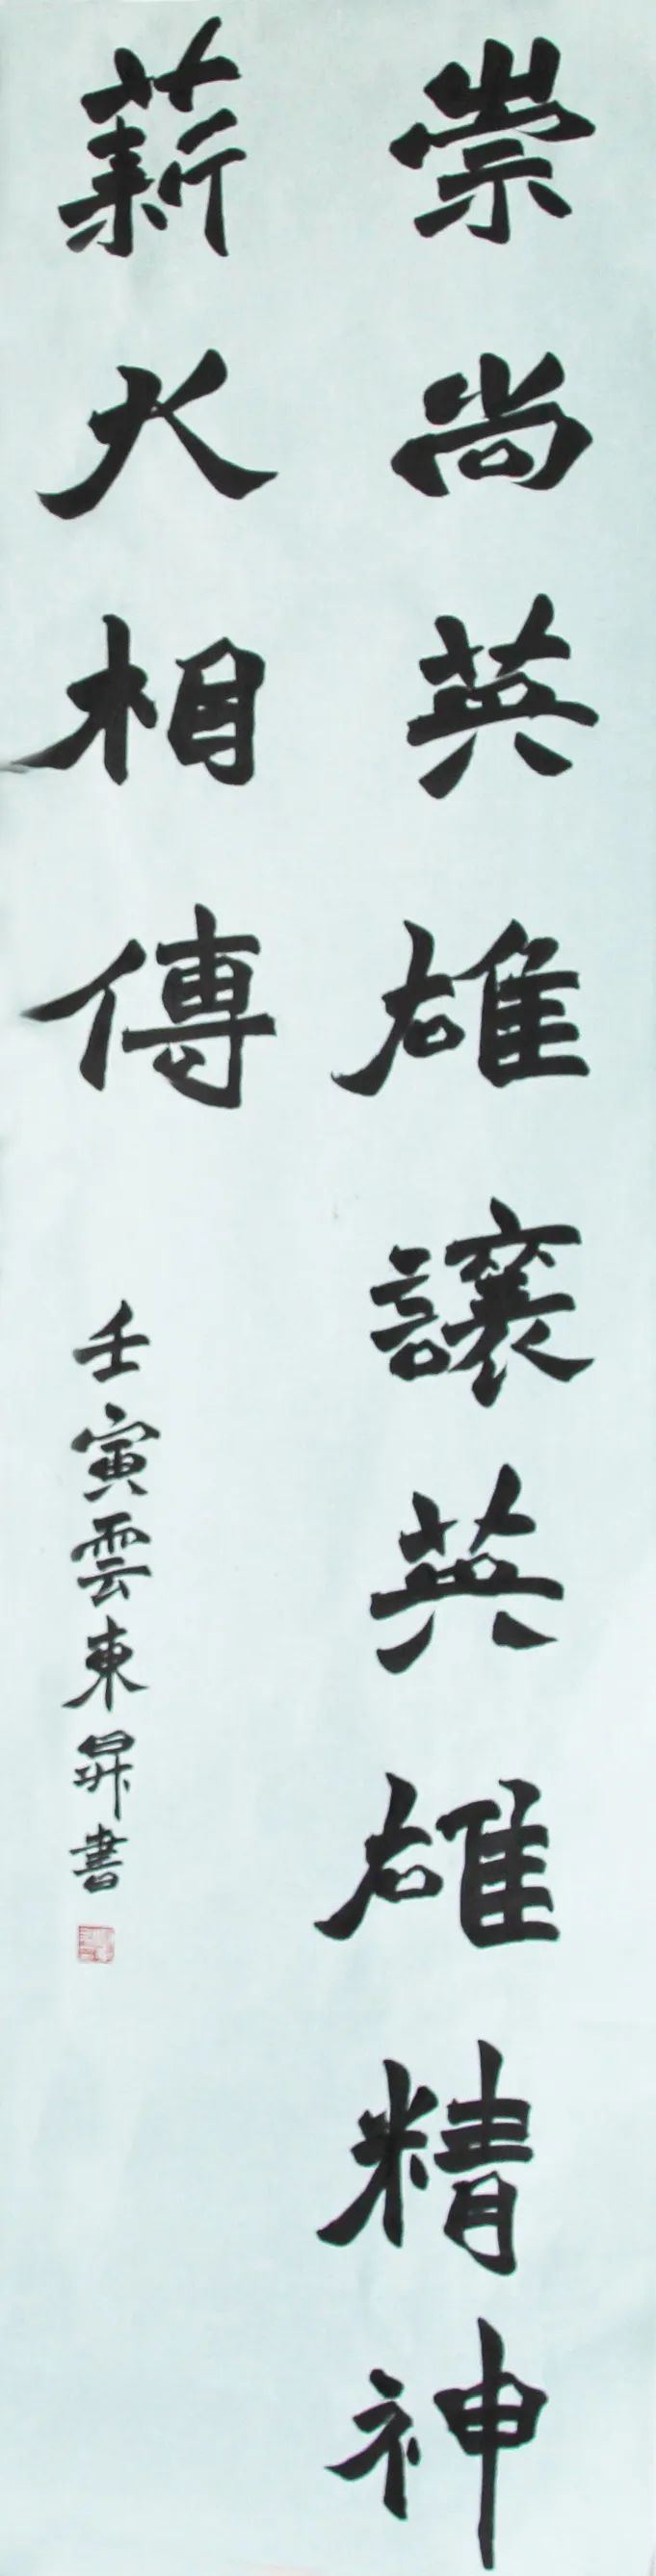 崇尚英雄讓英雄精神
薪火相傳
壬寅雲東昇書